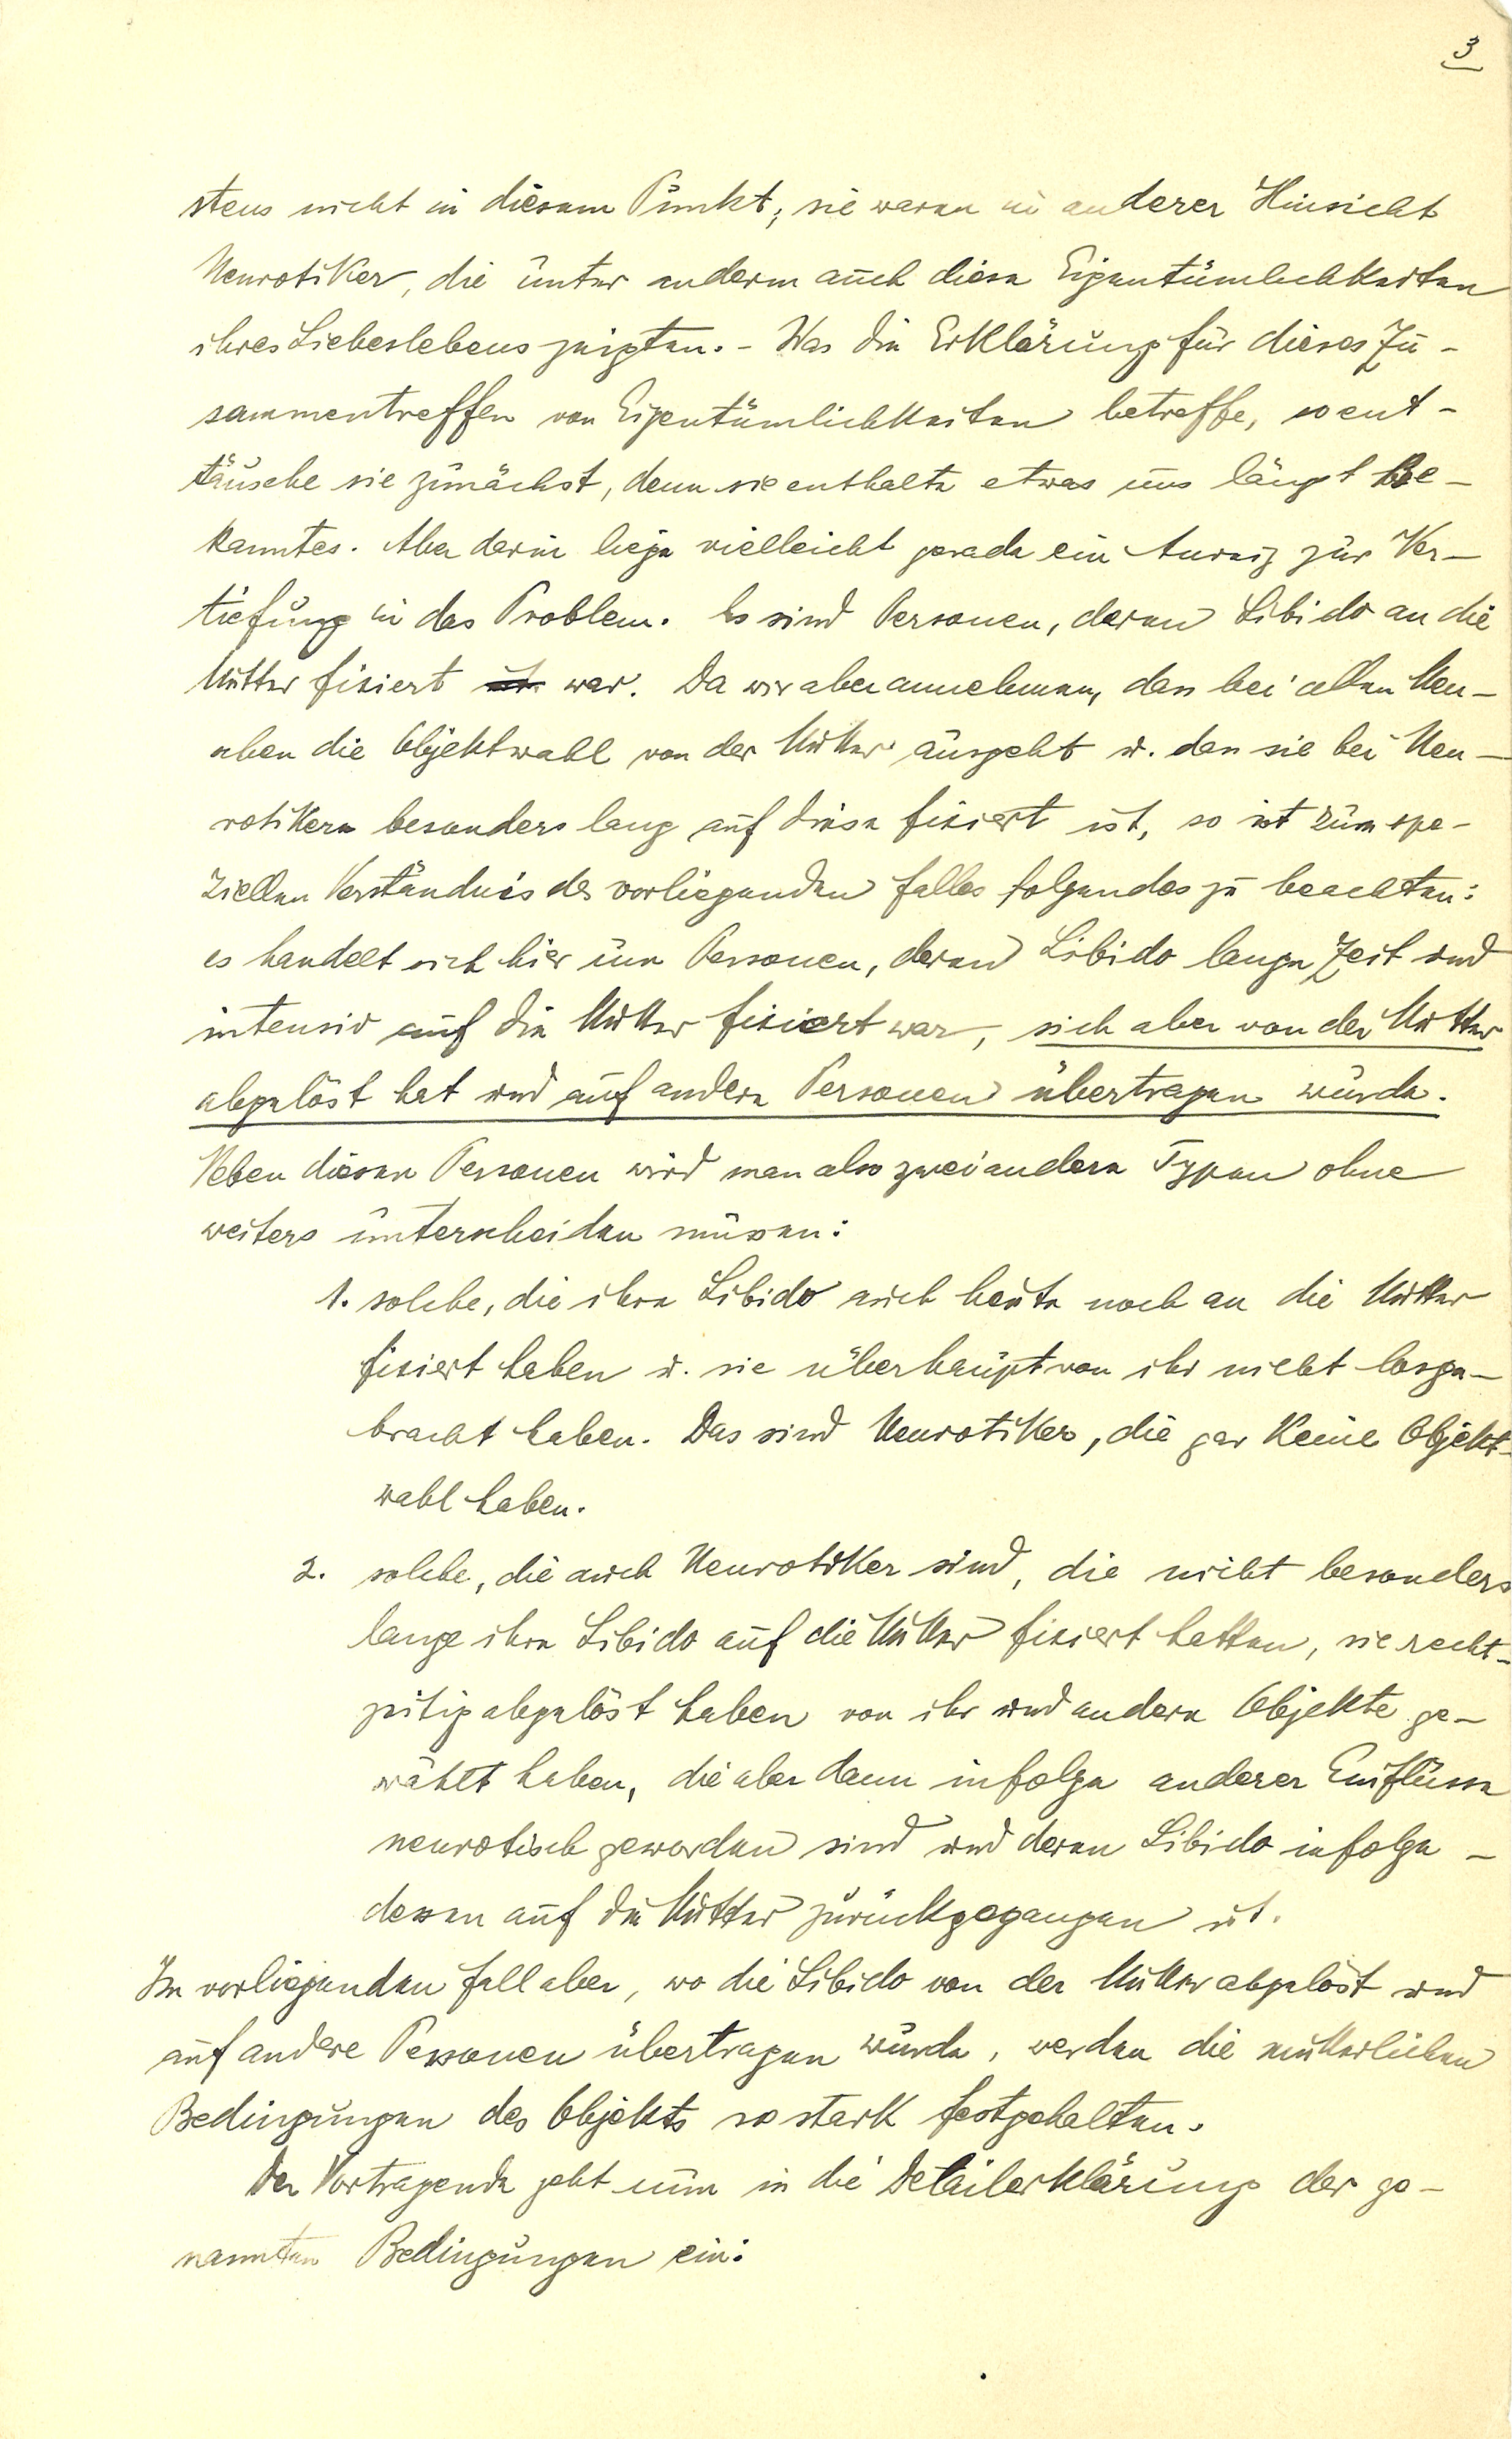 3
stens nicht in diesem Punkt; sie waren in anderer Hinsicht
Neurotiker, die unter anderm auch diese Eigentümlichkeiten
ihres Liebeslebens zeigten. - Was die Erklärung für dieses Zu-
sammentreffen von Eigentümlichkeiten betreffe, so ent-
täusche sie zunächst, denn sie enthalte etwas uns längst Be-
kanntes. Aber darin liege vielleicht gerade ein Anreiz zur Ver-
tiefung in das Problem. Es sind Personen, deren Libido an die
Mutter fixiert ist war. Da wir aber annehmen, dass bei allen Men-
schen die Objektwahl von der Mutter ausgeht u. dass sie bei Neu-
rotikern besonders lang auf diese fixiert ist, so ist zum spe-
ziellen Verständnis des vorliegenden Falles folgendes zu beachten:
es handelt sich hier um Personen, deren Libido lange Zeit und
intensiv auf die Mutter fixiert war, sich aber von der Mutter
abgelöst hat und auf andere Personen übertragen wurde.
Neben diesen Personen wird man also zwei andere Typen ohne
weiters unterscheiden müssen:
1. solche, die ihre Libido auch heute noch an die Mutter
fixiert haben u. sie überhaupt von ihr nicht losge-
bracht haben. Das sind Neurotiker, die gar keine Objekt-
wahl haben.
2. solche, die auch Neurotiker sind, die nicht besonders
lange ihre Libido auf die Mutter fixiert hatten, sie recht-
zeitig abgelöst haben von ihr und andere Objekte ge-
wählt haben, die aber dann infolge anderer Einflüsse
neurotisch geworden sind und deren Libido infolge-
dessen auf die Mutter zurückgegangen ist.
Im vorliegenden Fall aber, wo die Libido von der Mutter abgelöst und
auf andere Personen übertragen wurde, werden die mütterlichen
Bedingungen des Objekts so stark festgehalten.
Der Vortragende geht nun in die Detailerklärung der ge-
nannten Bedingungen ein: